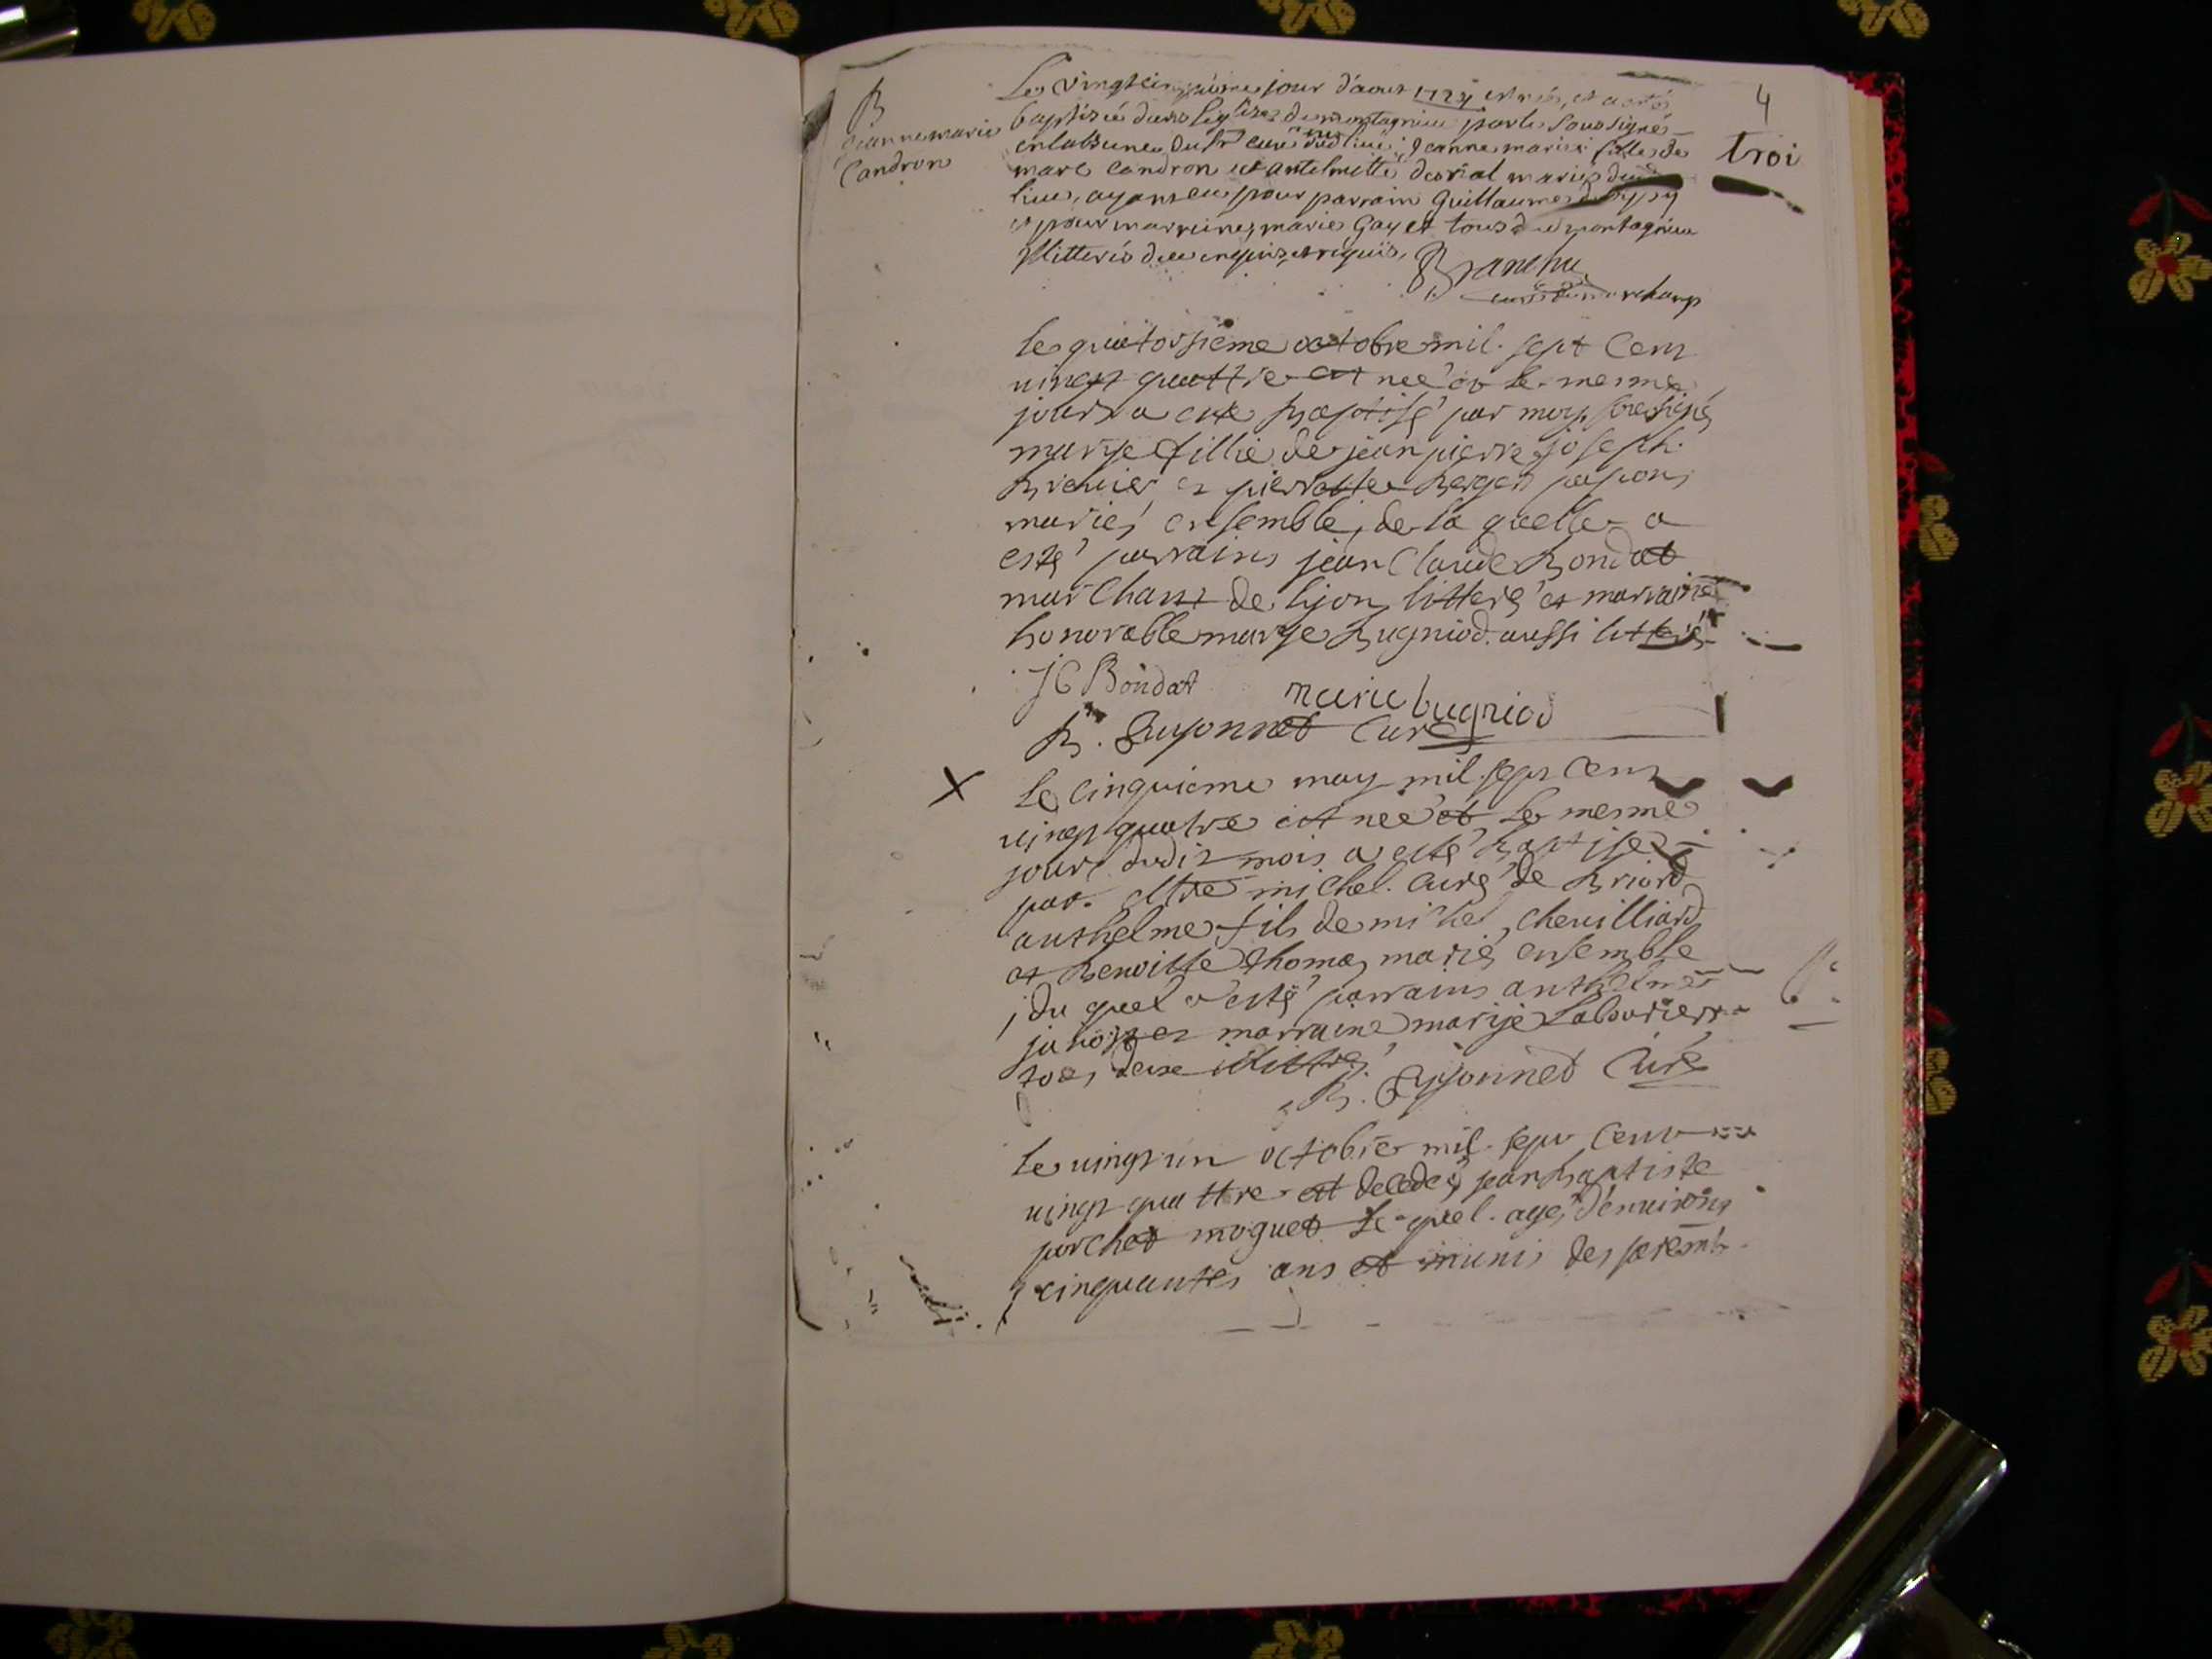 4
troi
B
Jeanne marie
Candron
Le vingtcinquieme jour d'aout 1724 est née, et a esté
baptisée dans l'eglise de montagnieu par le soussigné
en labsence du Sr curé dud lieu, Jeanne marie fille de
marc Candron et antelmette dorial mariés dud
lieu, ayant eu pour parrain Guillaume
et pour marraine marie Gay et tous de montagnieu
illitterés de ce enquis et requis.
Branchu
curé de marchamp
le quattorsieme octobre mil sept Cent
uingt quattre est neé et le mesme
jours a esté baptisé par moy soussigné
marye fillie de jean pierre joseph
brenier et pierrette berger
mariés ensemble, de la quelle a
esté parrains jean Claude bondat
marChant de lyon litteré et marraine
honorable marye bugniod aussi litterés
JC Bondat marie bugniod
B. Guyonnet Curé
X
Le cinquieme may mil sept Cent
uingt quatre est neé et le mesme
jours dudit mois a esté baptise
par mtre michel Curé de briord
anthelme fils de michel cheuilliard
et benoitte thomas mariés ensemble
du quel a esté parrains anthelme
et marraine marye
tous deux illitterés
B. Guyonnet Curé
Le uingt un octobre mil sept Cent
uingt quattre est decedes jean baptiste
porchet moguet le quel agé d'enuirons
cinquantes ans et munis des